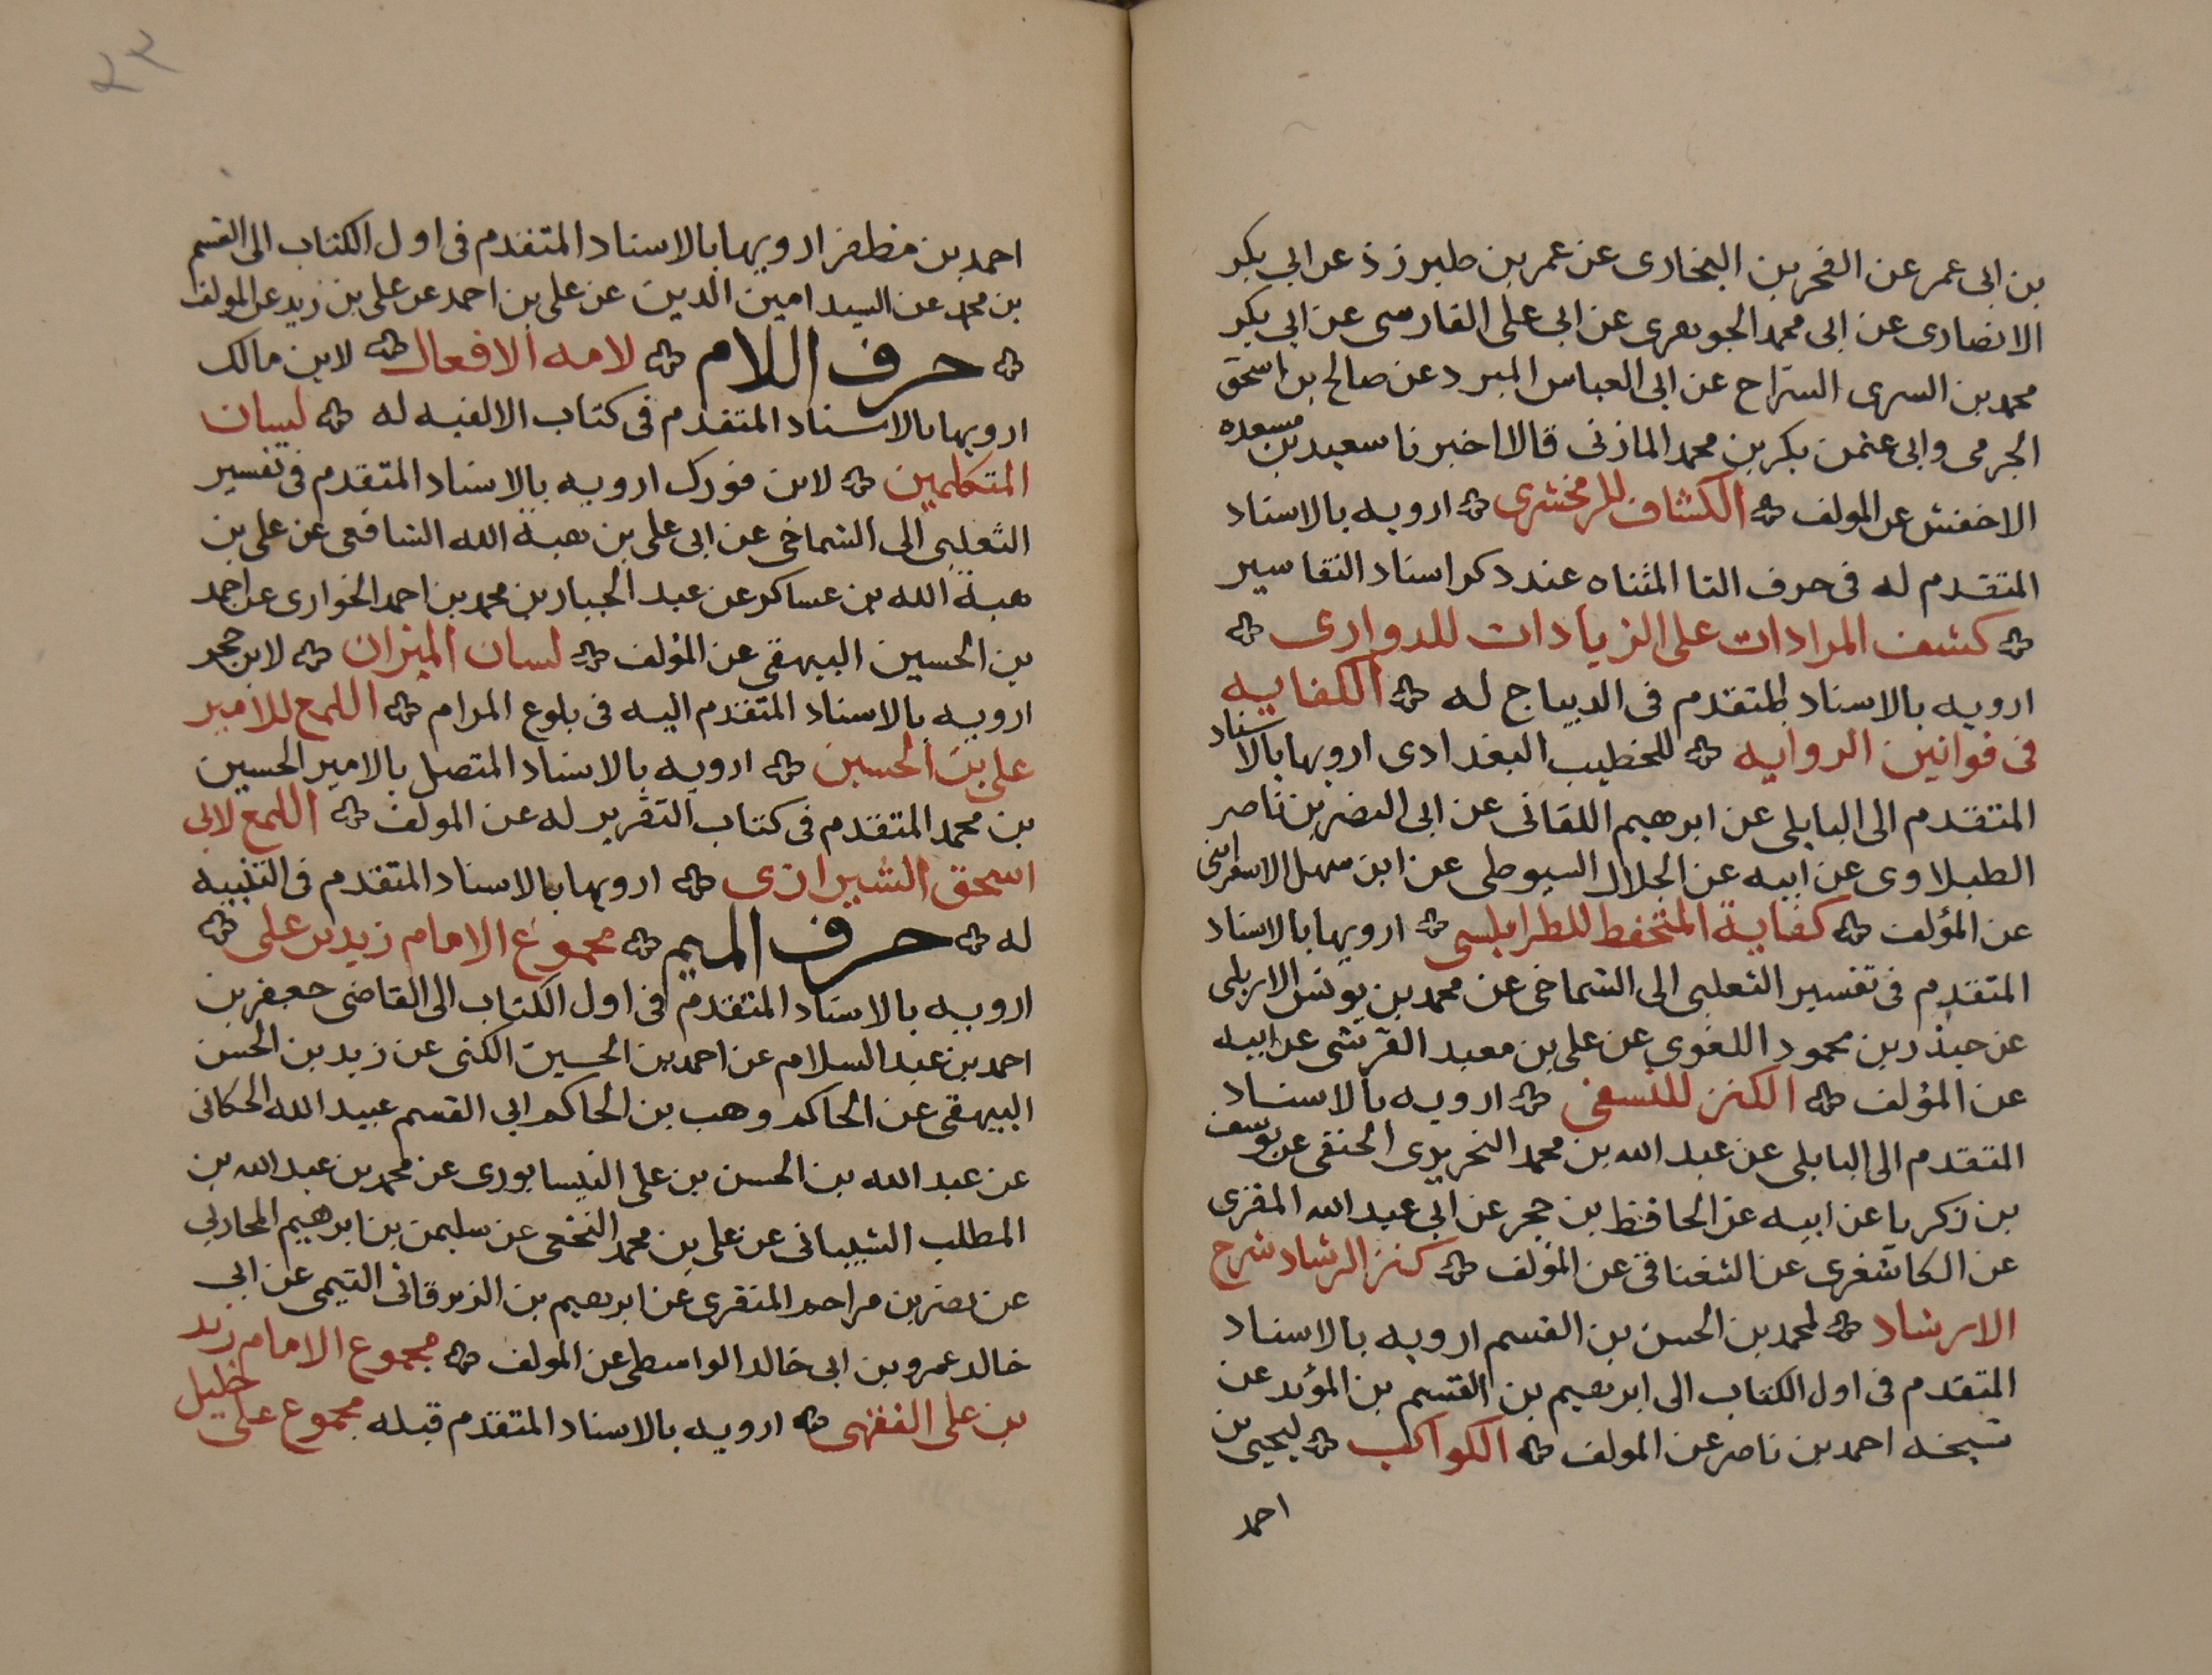 بن ابى عمر عن الفخر بن البخارى عن عمر بن طبرزذ عن ابى بكر
الانصارى عن ابى محمد الجوهرى عن ابى على الفارسى عن ابى بكر
محمد بن السرى السرّاج عن ابى العباس المبرد عن صالح بن اسحق
الجرمى وابى عثمن بكر بن محمد المازنى قالا اخبرنا سعيد بن مسعده
الاخفش عن المولف الكشاف للزمخشرى ارويه بالاسناد
المتقدم له فى حرف التا المثناه عند ذكر اسناد التفاسير
كشف المرادات على الزيادات للدوارى
ارويه بالاسناد المتقدم فى الديباج له الكفايه
فى قوانين الروايه للخطيب البغدادى ارويها بالاسناد
المتقدم الى البابلى عن ابرهيم اللقانى عن ابى النضر بن ناصر
الطبلاوى عن ابيه عن الجلال السيوطى عن ابن سهل الاسفراينى
عن المؤلف كفاية المتحفظ للطرابلسى ارويها بالاسناد
المتقدم فى تفسير الثعلبى الى الشماخى عن محمد بن يونس الاربلى
عن حيدر بن محمود اللغوى عن على بن معبد القرشى عن ابيه
عن المؤلف الكنز للنسفى ارويه بالاسناد
المتقدم الى البابلى عن عبد الله بن محمد النحريرى الحنفى عن يوسف
بن زكريا عن ابيه عن الحافظ بن حجر عن ابى عبد الله المقرى
عن الكاشغرى عن الشغناقى عن المؤلف كنز الرشاد شرح
الارشاد لمحمد بن الحسن بن القسم ارويه بالاسناد
المتقدم فى اول الكتاب الى ابرهيم بن القسم بن المؤيد عن
شيخه احمد بن ناصر عن المولف الكواكب ليحيى بن
احمد
٢٢
احمد بن مظفر ارويها بالاسناد المتقدم فى اول الكتاب الى القسم
بن محمد عن السيد امين الدين عن على بن احمد عن على بن زيد عن المولف
حرف اللام لامه الافعال لابن مالك
ارويها بالاسناد المتقدم فى كتاب الالفيه له لسان
المتكلمين لابن فورك ارويه بالاسناد المتقدم فى تفسير
الثعلبى الى الشماخى عن ابى على بن هبة الله الشافعى عن على بن
هبة الله بن عساكر عن عبد الجبار بن محمد بن احمد الخوارى عن احمد
بن الحسين البيهقى عن المؤلف لسان الميزان لابن حجر
ارويه بالاسناد المتقدم اليه فى بلوع المرام اللمع للامير
على بن الحسين ارويه بالاسناد المتصل بالامير الحسين
بن محمد المتقدم فى كتاب التقرير له عن المولف اللمع لابى
اسحق الشيرازى ارويها بالاسناد المتقدم فى التنبيه
له حرف الميم مجموع الامام زيد بن على
ارويه بالاسناد المتقدم فى اول الكتاب الى القاضى جعفر بن
احمد بن عبد السلام عن احمد بن الحسين الكنى عن زيد بن الحسن
البيهقى عن الحاكم وهب بن الحاكم ابى القسم عبيد الله الحكانى
عن عبد الله بن الحسن بن على النيسابورى عن محمد بن عبد الله بن
المطلب الشيبانى عن على بن محمد النخعى عن سليمن بن ابرهيم المحاربى
عن نصر بن مراحم المنقرى عن ابرهيم بن الزبرقانى التيمى عن ابى
خالد عمرو بن ابى خالد الواسطى عن المولف مجموع الامام زيد
بن على الفقهى ارويه بالاسناد المتقدم قبله مجموع على خليل